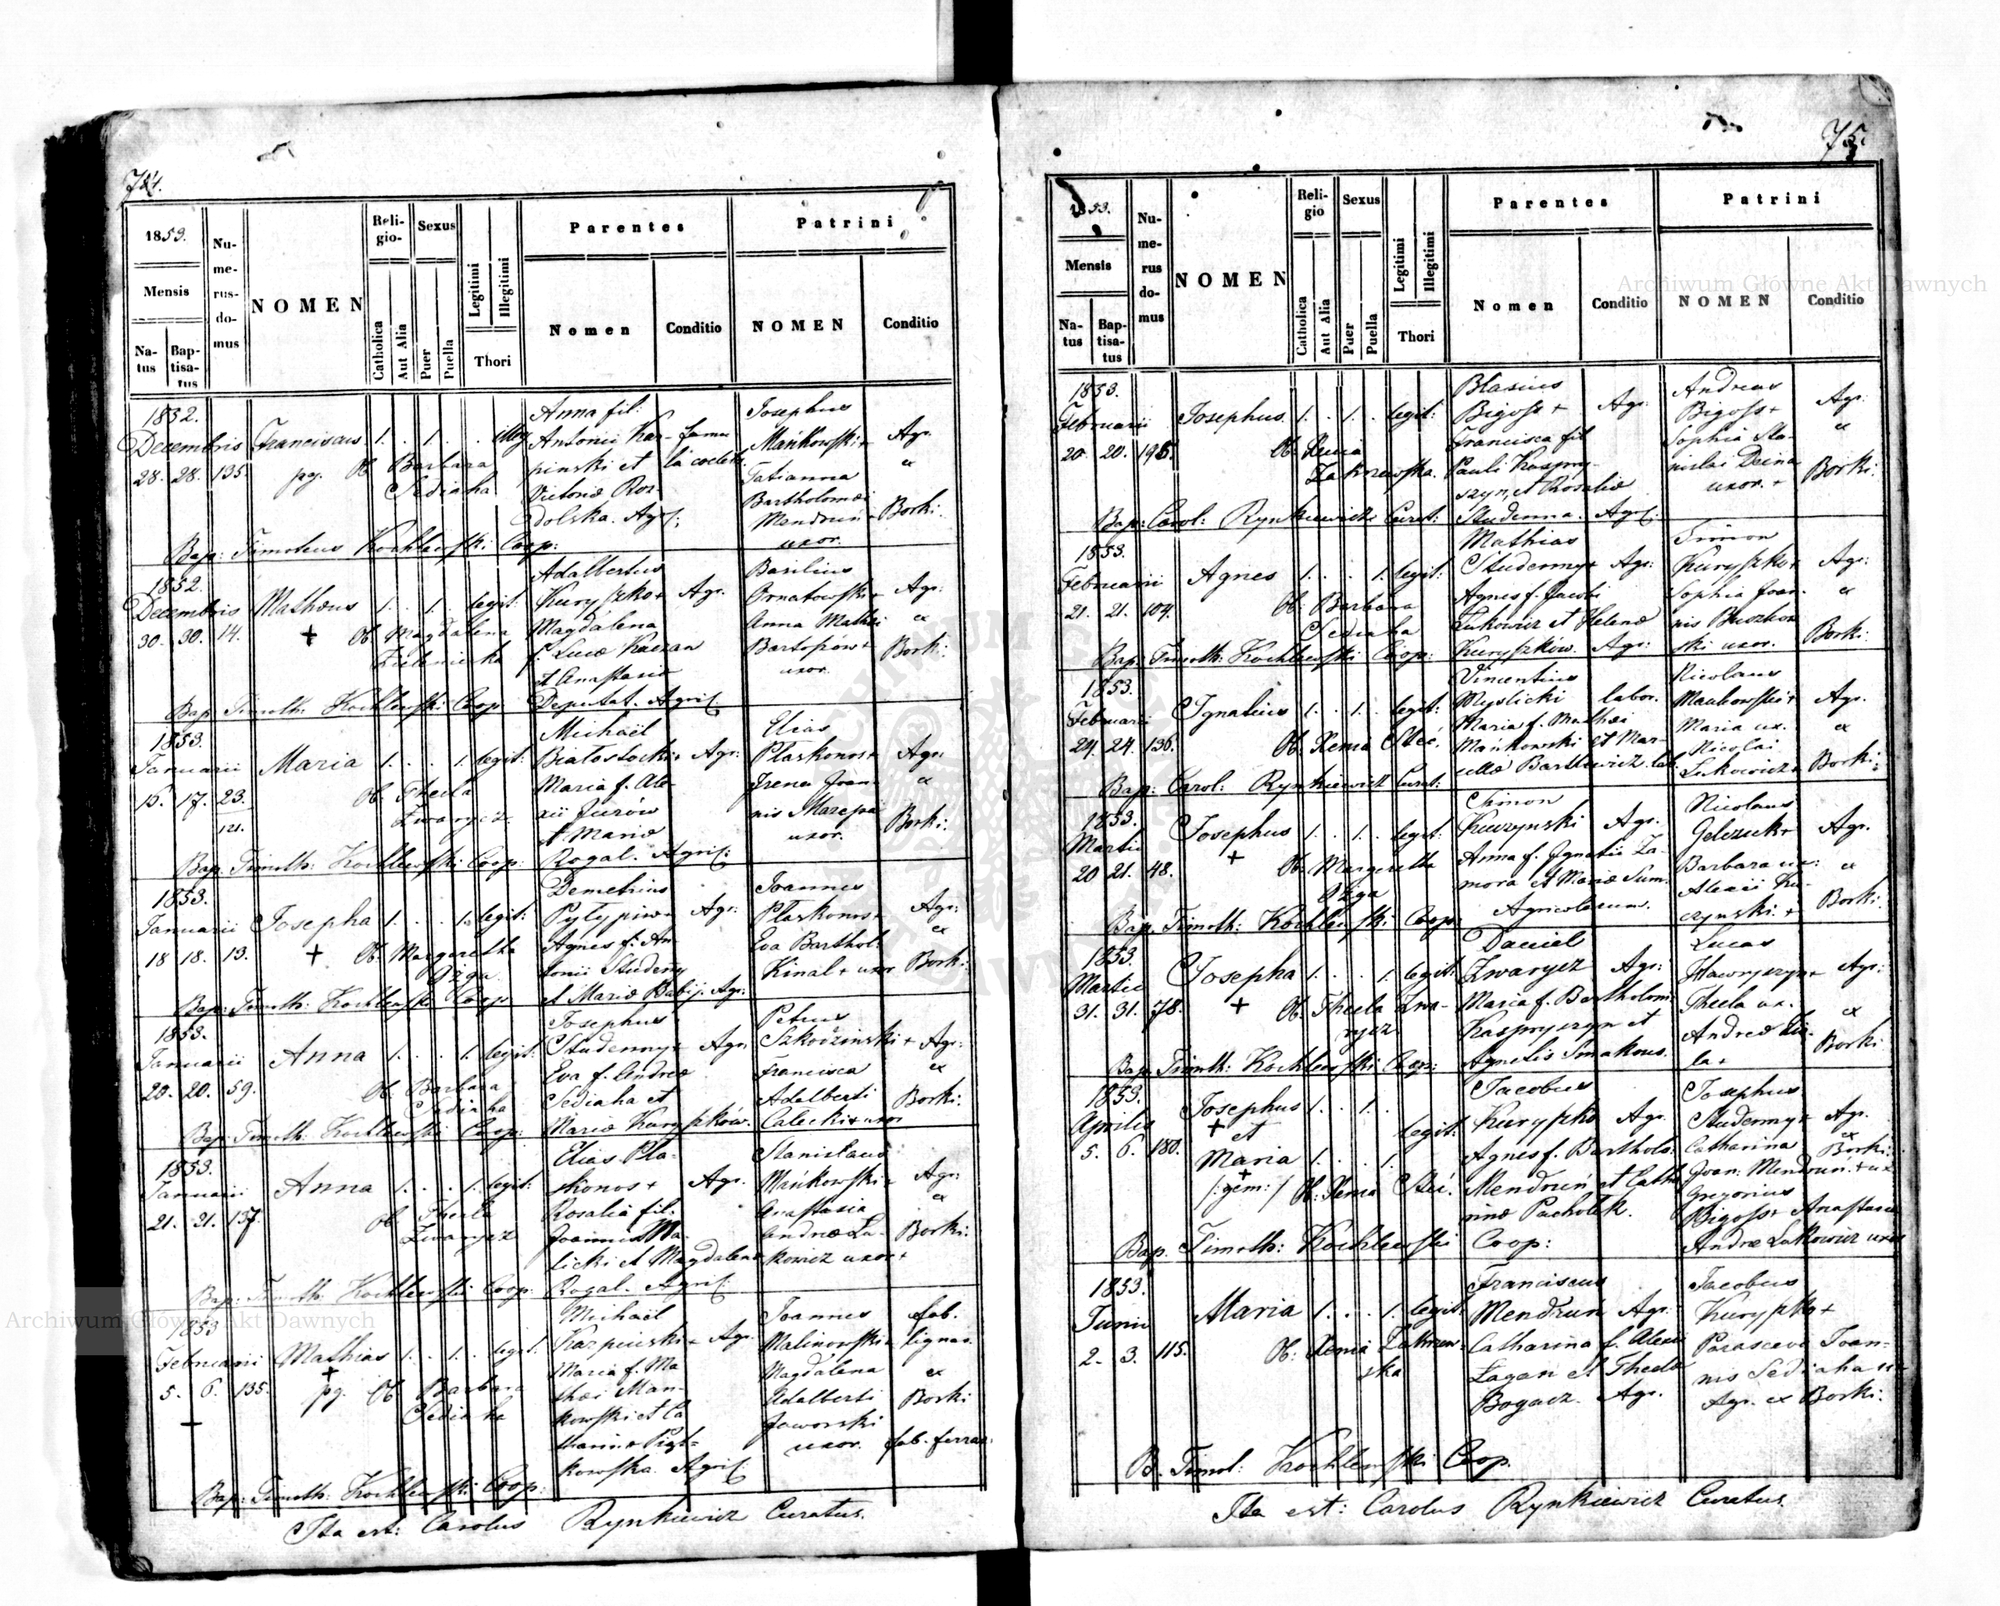 74.
1853.
Mensis
Na-
tus
Bap-
tisa-
tus
Nu-
me-
rus-
do-
mus
NOMEN
Reli-
gio-
Catholica
Aut Alia
Sexus
Puer
Puella
Legitimi
Illegitimi
Thori
Parentes
Nomen
Conditio
Patrini
NOMEN
Conditio
1852.
Decembris
28. 28. 135.
Franciscus
pg.
1. . 1. . illeg
Ob. Barbara
Sediaha
Anna fil:
Antonii Kar-
pinski et
Victoriæ
dolska. Agr:
Josephus
Mańkowski +
Tatianna
Bartholomæi
Mendruń +
uxor.
Agr.
ex
Borki.
Bap: Timoteus Kochlewski Coop:
1852.
Decembris
30. 30. 14.
Mathæus
1. . 1. . legit:
Ob. Magdalena
Zieleniecka
Adalbertus
Kuryszko +
Agr.
Magdalena
f. Lucæ
et Anastasiæ
Deputat. Agric:
Basilius
Ornatowski +
Anna Mathæi
Bartopów +
uxor.
Agr:
ex
Borki:
Bap: Timoth: Kochlewski Coop.
1853.
Januarii
16. 17. 23.
121.
Maria
1. . . 1. legit:
Ob. Thecla
Zwarycz
Michaël
Białostocki +
Agr:
Maria f. Ale-
xii Jurów
et Mariæ
Rogal. Agric:
Elias
Płaskonos +
Irena Joan-
nis Mazepa
uxor.
Agr:
ex
Borki:
Bap. Timoth: Kochlewski Coop:
1853.
Januarii
18 18. 13.
Josepha
1. . . 1. legit:
Ob. Margaretha
Ożga
Demetrius
Pyłypiw +
Agr:
Agnes f. An-
tonii Studenny
et Mariæ Babij. Agr:
Joannes
Płaskonos +
Eva Barthol:
Kinal + uxor
Agr:
ex
Borki:
Bap: Timoth: Kochlewski Coop.
1853.
Januarii
20. 20. 59.
Anna
1. . . 1. legit:
Ob. Barbara
Sediaha
Josephus
Studenny +
Agr
Eva f. Andreæ
Sediaha et
Mariæ Kuryszków.
Petrus
Szkodziński +
Francisca
Adalberti
Calecki + uxor
Agr:
ex
Borki:
Bap: Timoth: Kochlewski Coop:
1853.
Januarii
21. 21. 137.
Anna
1. . . 1. legit:
Ob. Thecla
Zwarycz
Elias Pła-
skonos +
Agr.
Rosalia fil:
Joannis Ma-
licki et Magdalenæ
Rogal. Agric:
Stanislaus
Mańkowski +
Anastasia
Andreæ Łu-
kowicz uxor +
Agr:
ex
Borki:
Bap. Timoth: Kochlewski Coop:
1853
Februarii
5. 6. 135.
Mathias
pg.
1. . 1. . legit.
Ob. Barbara
Sediaha
Michaël
Karpinski +
Agr.
Maria f. Ma-
thæi Man-
kowski et Ca-
Agric:
Joannes
Malinowski +
Magdalena
Adalberti
Jaworski
uxor.
fab.
lignar.
ex
Borki
fab. ferrar:
Bap: Timoth: Kochlewski Coop:
Ita est: Carolus Rynkiewicz Curatus.
75.
1853.
Mensis
Na-
tus
Bap-
tisa-
tus
Nu-
me-
rus
do-
mus
NOMEN
Reli-
gio
Catholica
Aut Alia
Sexus
Puer
Puella
Legitimi
Illegitimi
Thori
Parentes
Nomen
Conditio
Patrini
NOMEN
Conditio
1853.
Februarii
20. 20.
Josephus
1. . 1. . legit:
Ob. Xenia
Zakrzewska.
Blasius
Bigoss +
Agr:
Francisca fil
Pauli Kaspry-
szyn, et Rosaliæ
Studenna. Agric:
Andreas
Bigoss +
Sophia Sta-
nislai Deina
uxor. +
Agr:
ex
Borki:
Bap: Carol: Rynkiewicz Curat:
1853.
Februarii
21. 21. 104.
Agnes
1. . . 1. legit:
Ob. Barbara
Sediaha
Mathias
Studenny +
Agr:
Agnes f. Jacobi
Łukowicz et Helenæ
Kuryszków. Agr:
Simon
Kuryszko +
Sophia Joan-
nis
ski uxor.
Agr:
ex
Borki:
Bap: Timoth: Kochlewski Coop:
1853.
Februarii
24. 24. 136.
Ignatius
1. . 1. . legit:
Ob. Xenia Steć.
Vincentius
Myslicki
labor.
Maria f. Mathæi
Mańkowski et Mar-
cellæ Bartkiewicz. lab.
Nicolaus
Mankowski +
Maria ux.
Nicolai
Łukowicz +
Agr.
ex
Borki:
Bap: Carol: Rynkiewicz Curat:
1853.
Martii
20 21. 48.
Josephus
1. . 1. . legit:
Ob. Margaretha
Ożga
Simon
Kuczynski
Agr.
Anna f. Ignatii Za-
mora et Mariæ Sum.
Agricolarum.
Nicolaus
Gelezuk +
Barbara ux:
Alexii Ku-
czynski. +
Agr.
ex
Borki:
Bap. Timoth: Kochlewski Coop:
1853.
Martii
31. 31. 78.
Josepha
1. . . 1. legit:
Ob. Thecla Zwa-
rycz
Daniel
Zwarycz
Agr:
Maria f. Bartholom.
Kaspryszyn et
Agnetis Smakous.
Lucas
Hawryszyn +
Thecla ux.
Andreæ
la +
Agr:
ex
Borki
Bap: Timoth: Kochlewski Coop:
1853.
Aprilis
5. 6. 180.
Josephus
et
Maria
/:gem:/
1. . 1.
1. . . 1.
legit:
Ob: Xenia Steć.
Jacobus
Kuryszko
Agr.
Agnes f. Barthols.
Mendruń et Catha-
rinæ Pachołek.
Josephus
Studenny +
Catharina
Joan: Mendruń. + ux
Gregorius
Bigoss + Anastasia
Andreæ Łukowicz uxor
Agr.
ex
Borki:
Bap. Timoth: Kochlewski Coop:
1853.
Junii
2. 3. 115.
Maria
1. . . 1. legit:
Ob: Xenia Zakrzew-
ska
Franciscus
Mendruń
Agr:
Catharina f. Alexii
Łagan et Theclæ
Bogacz. Agr.
Jacobus
Kuryszko +
Parasceva Joan-
nis Sediaha ux
Agr. ex Borki:
B. Timot: Kochlewski Coop.
Ita est: Carolus Rynkiewicz Curatus.
Archiwum Główne Akt Dawnych
Archiwum Główne Akt Dawnych